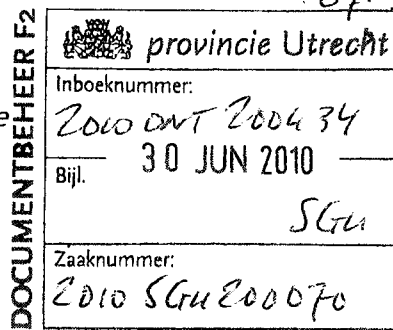 DOCUMENTBEHEER F2
provincie Utrecht
Inboeknummer:
2010 ONT 200434
30 JUN 2010
Bijl.
SGU
Zaaknummer:
2010 SGU 200070